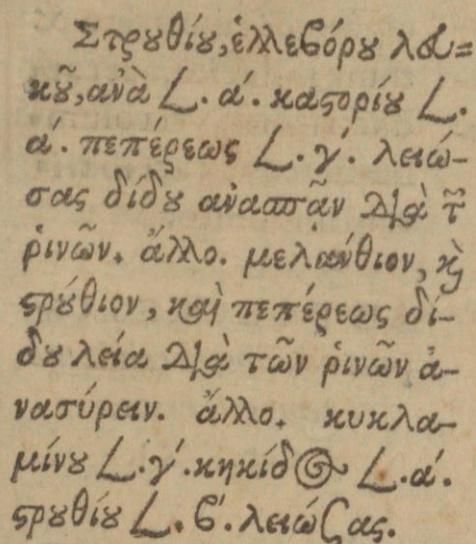 Στρουθίου, ἑλλεβόρου λευ=
κοῦ, ἀνὰ L. ά. καστορίου L.
ά. πεπέρεως L. γ́. λειώ-
σας δίδου ἀνασπᾶν διὰ τῶν
ῥινῶν. ἄλλο. μελάνθιον, καὶ
στρύθιον, καὶ πεπέρεως δί-
δου λεία διὰ τῶν ῥινῶν ἀ-
νασύρειν. ἄλλο. κυκλα-
μίνου L. γ́. κηκίδος L. ά.
στρουθίου L. β́. λειώσας.